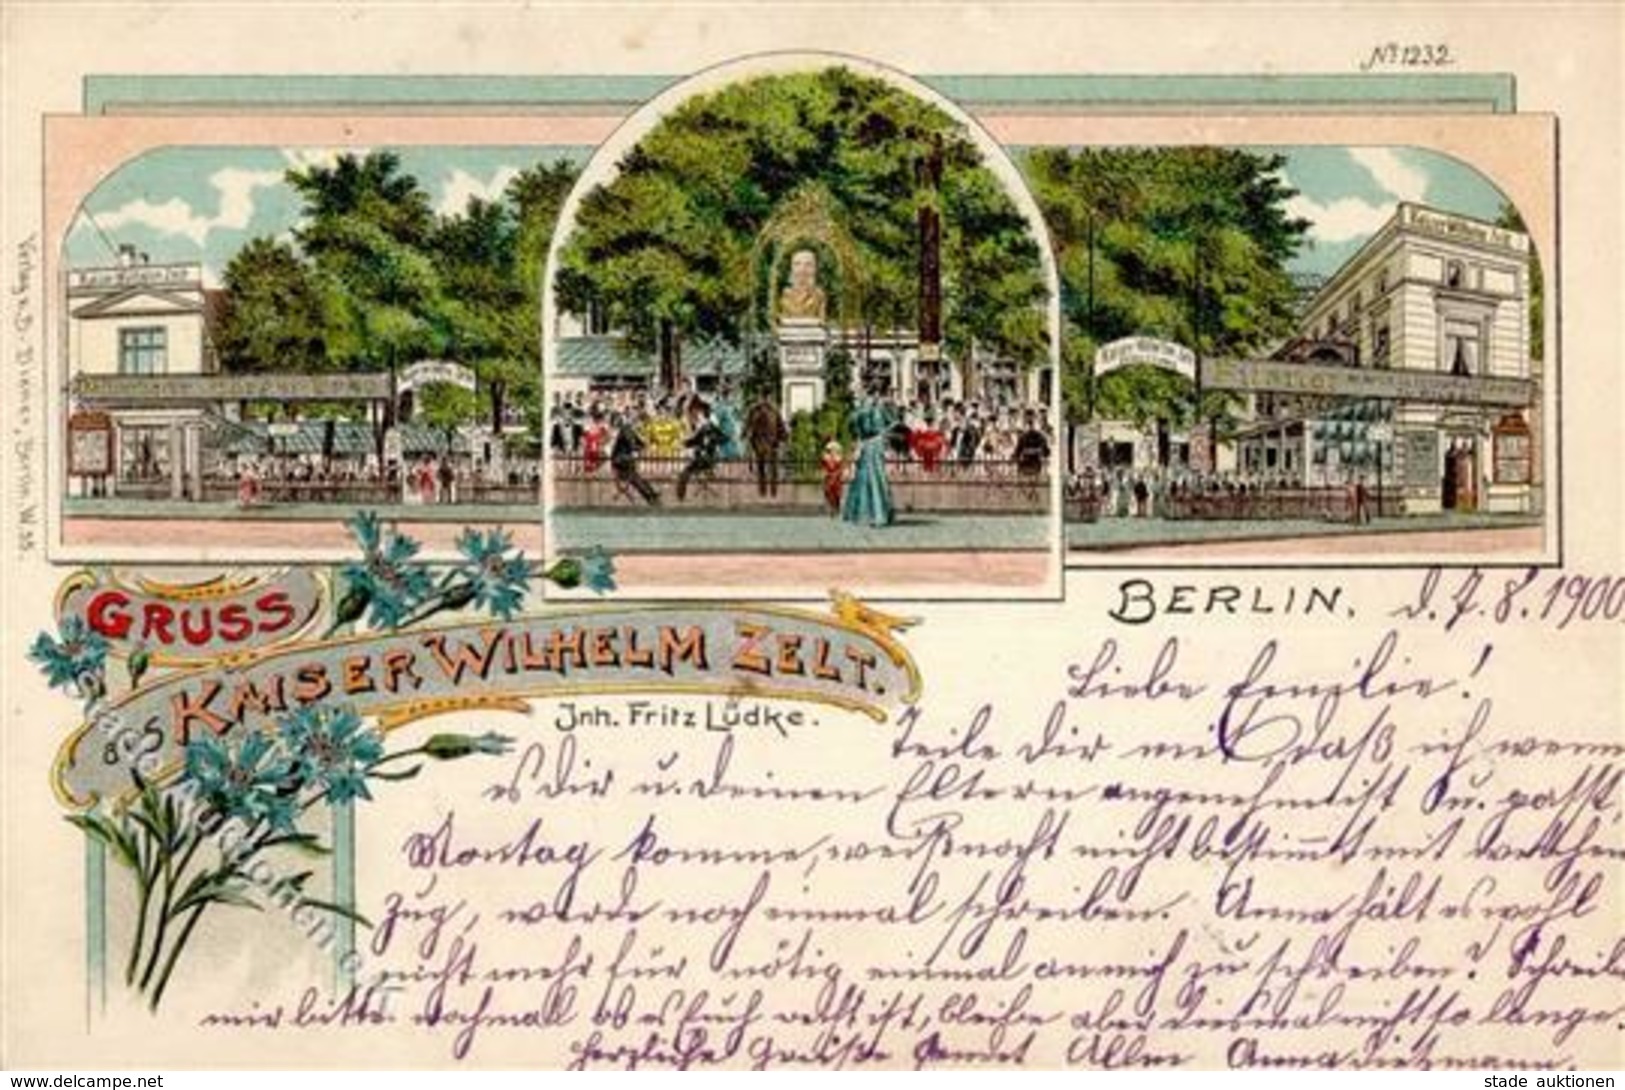 No 1232
Kaiser Wilhelm Zelt
Kaiser Wilhelm Zelt
Verlag v. D. Diener, Berlin W. 35.
GRUSS
aus KAISER WILHELM ZELT.
Inh. Fritz Lüdke.
BERLIN. d. 7. 8. 1900.
Liebe Emilie!
Teile Dir mit, daß ich wenn
es Dir u. deinen Eltern angenehm ist u. paßt,
Montag komme, weiß noch nicht bestimmt mit welchen
Zug, werde noch einmal schreiben. Anna hält es wohl
nicht mehr für nötig einmal an mich zu schreiben? Schreibe
mir bitte nochmall ob es Euch recht ist, bleibe aber diesmal nicht so lange.
Herzliche Grüße sendet Allen Anna Dietzmann.
www.delcampe.net
stade auktionen